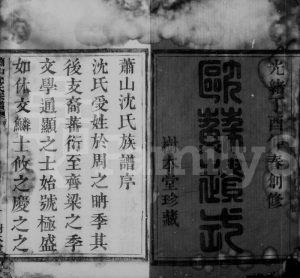 光緒丁酉春創修
樹本堂珍藏
蕭山沈氏族譜序
沈氏受姓於周之聃季其
後支裔蕃衍至齊梁之季
文學通顯之士始號極盛
如休文麟士攸之慶之之